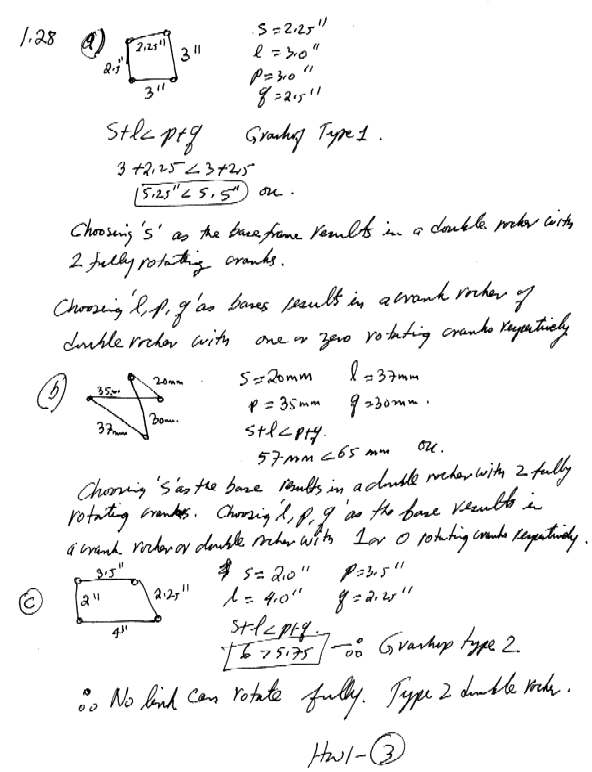 1.28 a) 2.25" 3" 2.5" 3"
S = 2.25"
l = 3.0"
p = 3.0"
q = 2.5"
S+l < p+q Grashof Type 1.
3 + 2.25 < 3 + 2.5
5.25" < 5.5" OK.
Choosing 'S' as the base frame results in a double rocker with
2 fully rotating cranks.
Choosing 'l, p, q' as bases results in a crank rocker or
double rocker with one or zero rotating cranks respectively
b) 35mm 20mm 37mm 30mm
S = 20mm l = 37mm
p = 35mm q = 30mm.
S+l < p+q.
57 mm < 65 mm OK.
Choosing 'S' as the base results in a double rocker with 2 fully
rotating cranks. Choosing 'l, p, q' as the base results in
a crank rocker or double rocker with 1 or 0 rotating cranks respectively.
c) 3.5" 2" 2.25" 4"
S = 2.0" p = 3.5"
l = 4.0" q = 2.25"
S+l < p+q.
6 > 5.75 → ∴ Grashop type 2.
∴ No link can rotate fully. Type 2 double rocker.
HW1-3